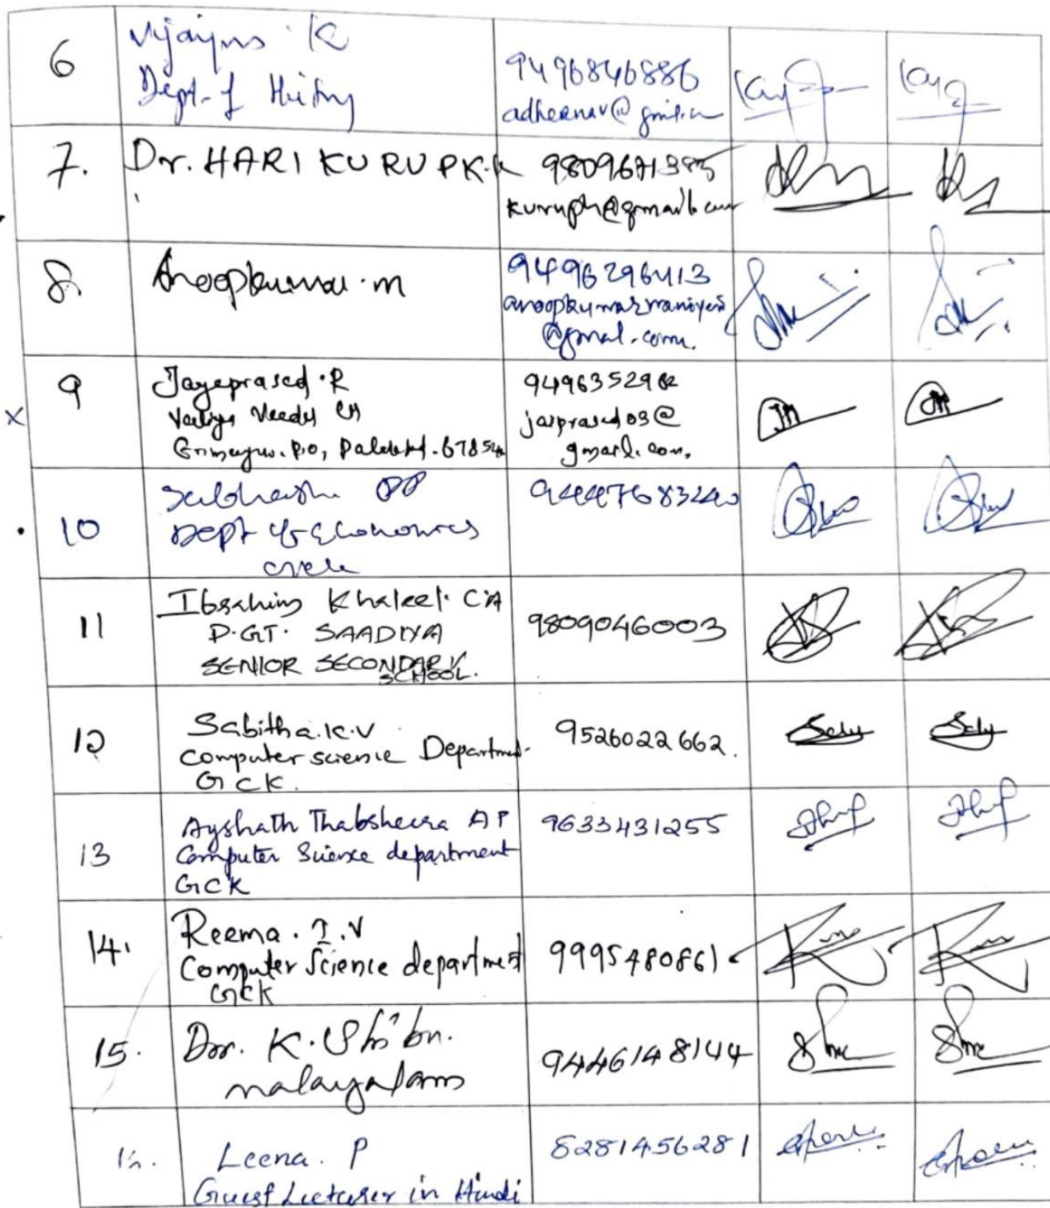 6
Vijayns K
Dept. of History
9496846886
adheenav@gmil.
7.
Dr. HARI KURUP K.K
9809671385
kuruph@gmail.com
8.
Anoopkumar.m
9496296413
anoopkumarmaniyeri
@gmal.com.
9
Jayaprased.R
P.O,
949635298
jayprased03@
gmail.com.
10
PP
Dept of Economics
9447683240
11
Ibrahim Khaleel. C.A
P.G.T. SAADIYA
SENIOR SECONDARY
SCHOOL.
9809046003
12
Sabitha.K.V
Computer science Department
GCK.
9526022662.
13
Ayshath Thabsheera AP
Computer Science department
GCK
9633431255
14.
Reema. T.V
Computer Science department
GCK
9995480861
15.
Dr. K.
malayalam
9446148144
Leena. P
Guest Lecturer in Hindi
8281456281